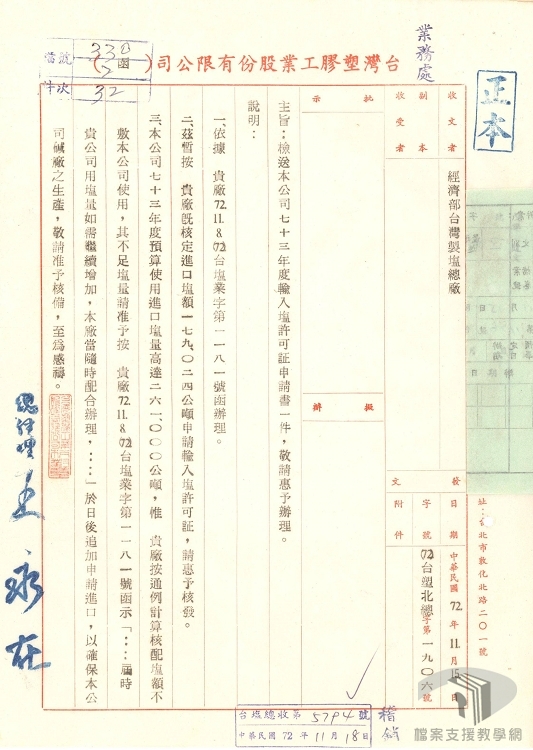 正本
業務處
檔號 330(2)
件次 32
台灣塑膠工業股份有限公司(函)
收文者
經濟部台灣製塩總廠
副本收受者
批示
擬辦
發文
日期 中華民國72年11月15日
字號 (72)台塑北總字第一九〇六號
附件
址:台北市敦化北路二〇一號
主旨:檢送本公司七十三年度輸入塩許可証申請書一件,敬請惠予辦理。
說明:
一、依據 貴廠72.11.8.(72)台塩業字第一一八一號函辦理。
二、茲暫按 貴廠既核定進口塩額一七九、〇二四公噸申請輸入塩許可証,請惠予核發。
三、本公司七十三年度預算使用進口塩量高達二六一、〇〇〇公噸,惟 貴廠按通例計算核配塩額不
敷本公司使用,其不足塩量請准予按 貴廠72.11.8.(72)台塩業字第一一八一號函示「:::屆時
貴公司用塩量如需繼續增加,本廠當隨時配合辦理,:::」於日後追加申請進口,以確保本公
司碱廠之生產,敬請准予核備,至為感禱。
總經理 王永在
台塩總收第5794號
中華民國72年11月18日
檔案支援教學網